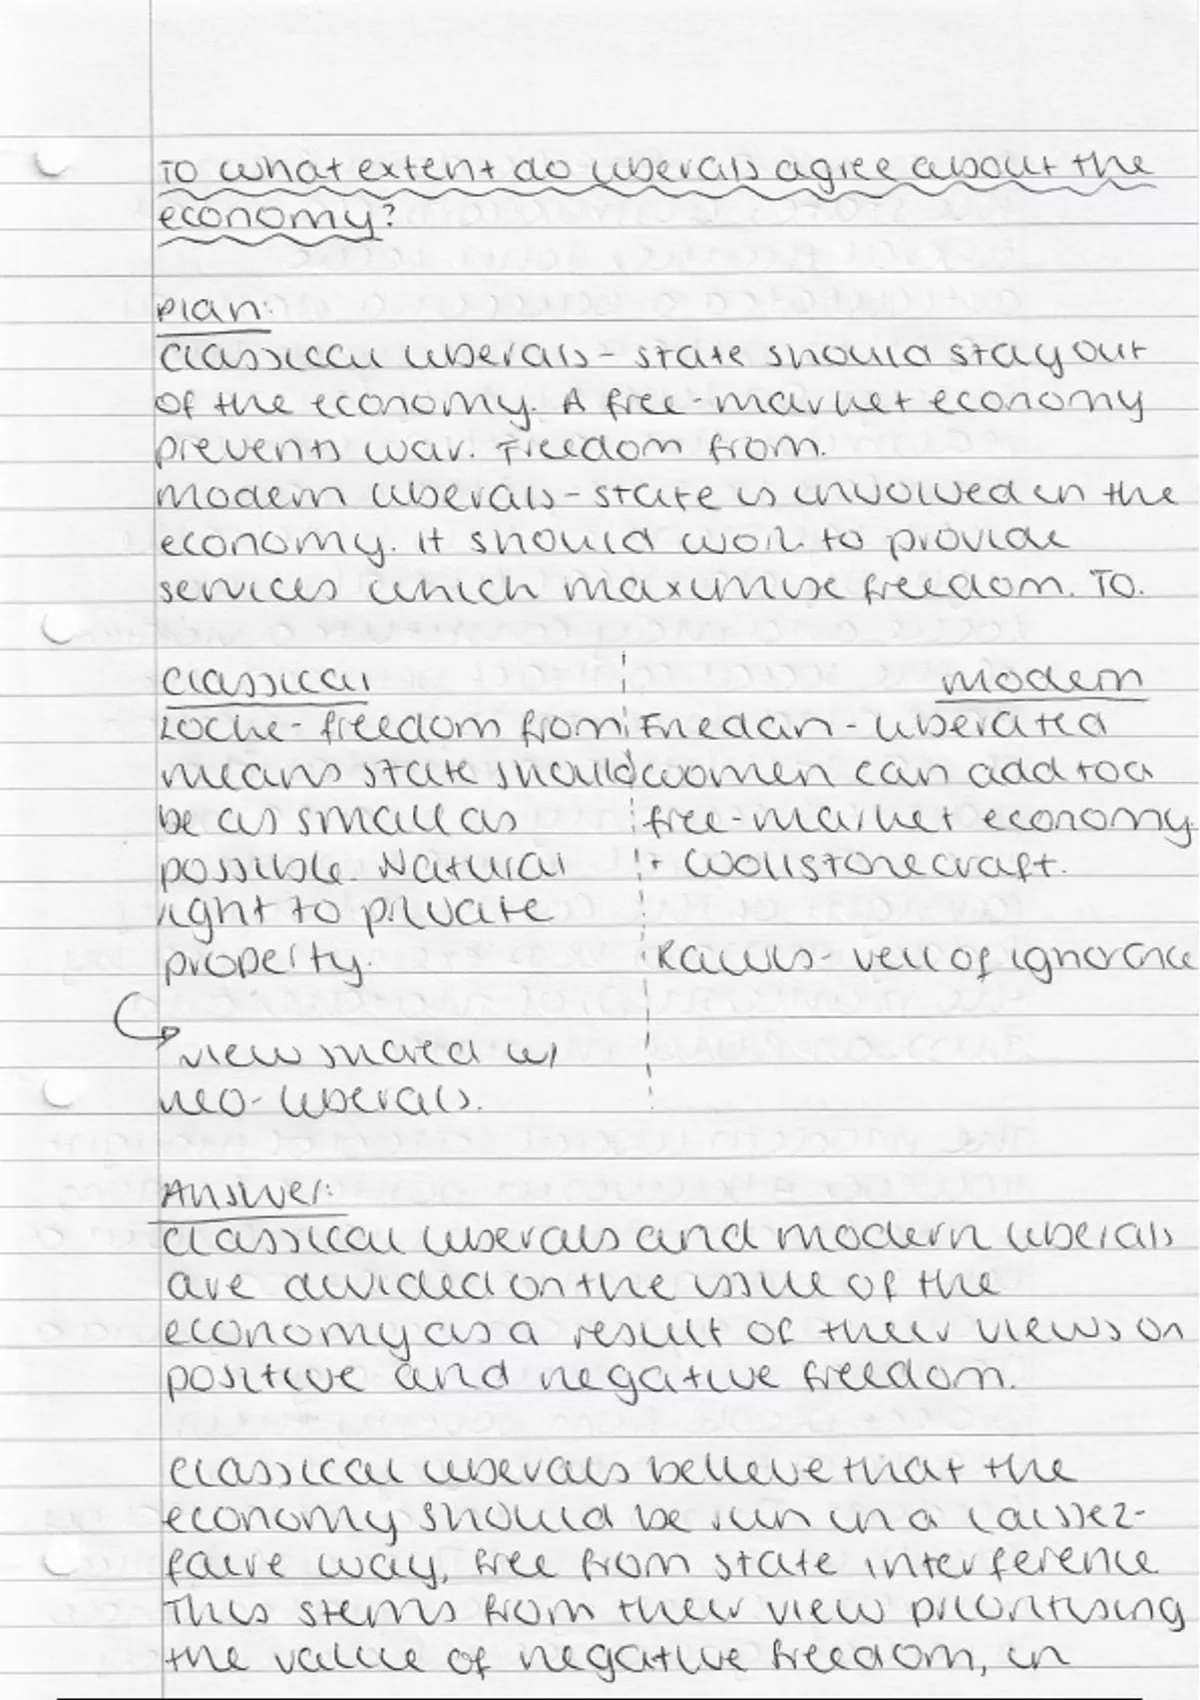 To what extent do liberals agree about the
economy?
Plan:
Classical liberals - state should stay out
of the economy. A free-market economy
prevents war. Freedom from.
Modern liberals - state is involved in the
economy. It should work to provide
services which maximise freedom. To.
Classical
Locke - freedom from
means state should
be as small as
possible. Natural
right to private
property.
view shared w/
neo-liberals.
Modern
Friedan - liberated
women can add to a
free-market economy.
+ Wollstonecraft.
Rawls - veil of ignorance
Answer:
Classical liberals and modern liberals
are divided on the issue of the
economy as a result of their views on
positive and negative freedom.
Classical liberals believe that the
economy should be run in a laissez-
faire way, free from state interference
This stems from their view prioritising
the value of negative freedom, in